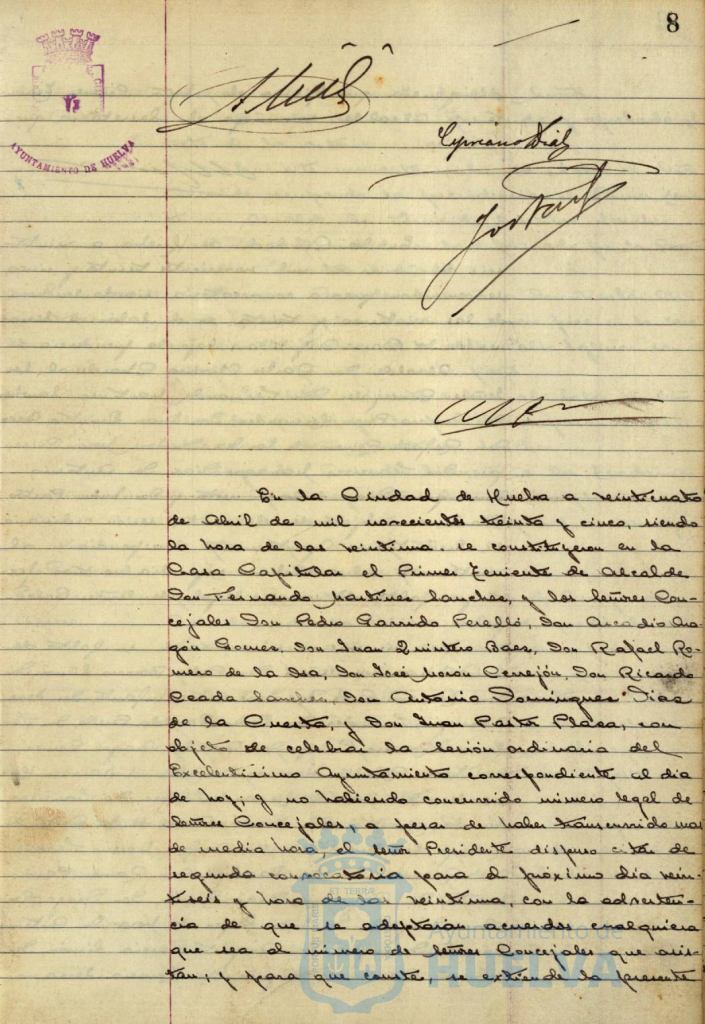 8
AYUNTAMIENTO DE HUELVA
Cipriano Díaz
En la Ciudad de Huelva a veinticuatro
de Abril de mil novecientos treinta y cinco, siendo
la hora de las veintiuna, se constituyeron en la
Casa Capitular el Primer Teniente de Alcalde
Don Fernando Martinez Sanchez, y los Señores Con-
cejales Don Pedro Garrido Perelló, Don Arcadio Ara-
gón Gomez, Don Juan Quintero Baez, Don Rafael Ro-
mero de la Isa, Don José Morón Cerrejón, Don Ricardo
Ceada Sanchez, Don Antonio Dominguez Diaz
de la Cuesta, y Don Juan Pastor Plaza, con
objeto de celebrar la sesión ordinaria del
Excelentísimo Ayuntamiento correspondiente al dia
de hoy; y no habiendo concurrido número legal de
Señores Concejales, a pesar de haber transcurrido mas
de media hora, el señor Presidente dispuso citar de
segunda convocatoria para el próximo día vein-
tiseis y hora de las veintiuna, con la adverten-
cia de que se adoptarán acuerdos cualquiera
que sea el número de Señores Concejales que asis-
tan; y para que conste, se extiende la presente
Ayuntamiento de
HUELVA